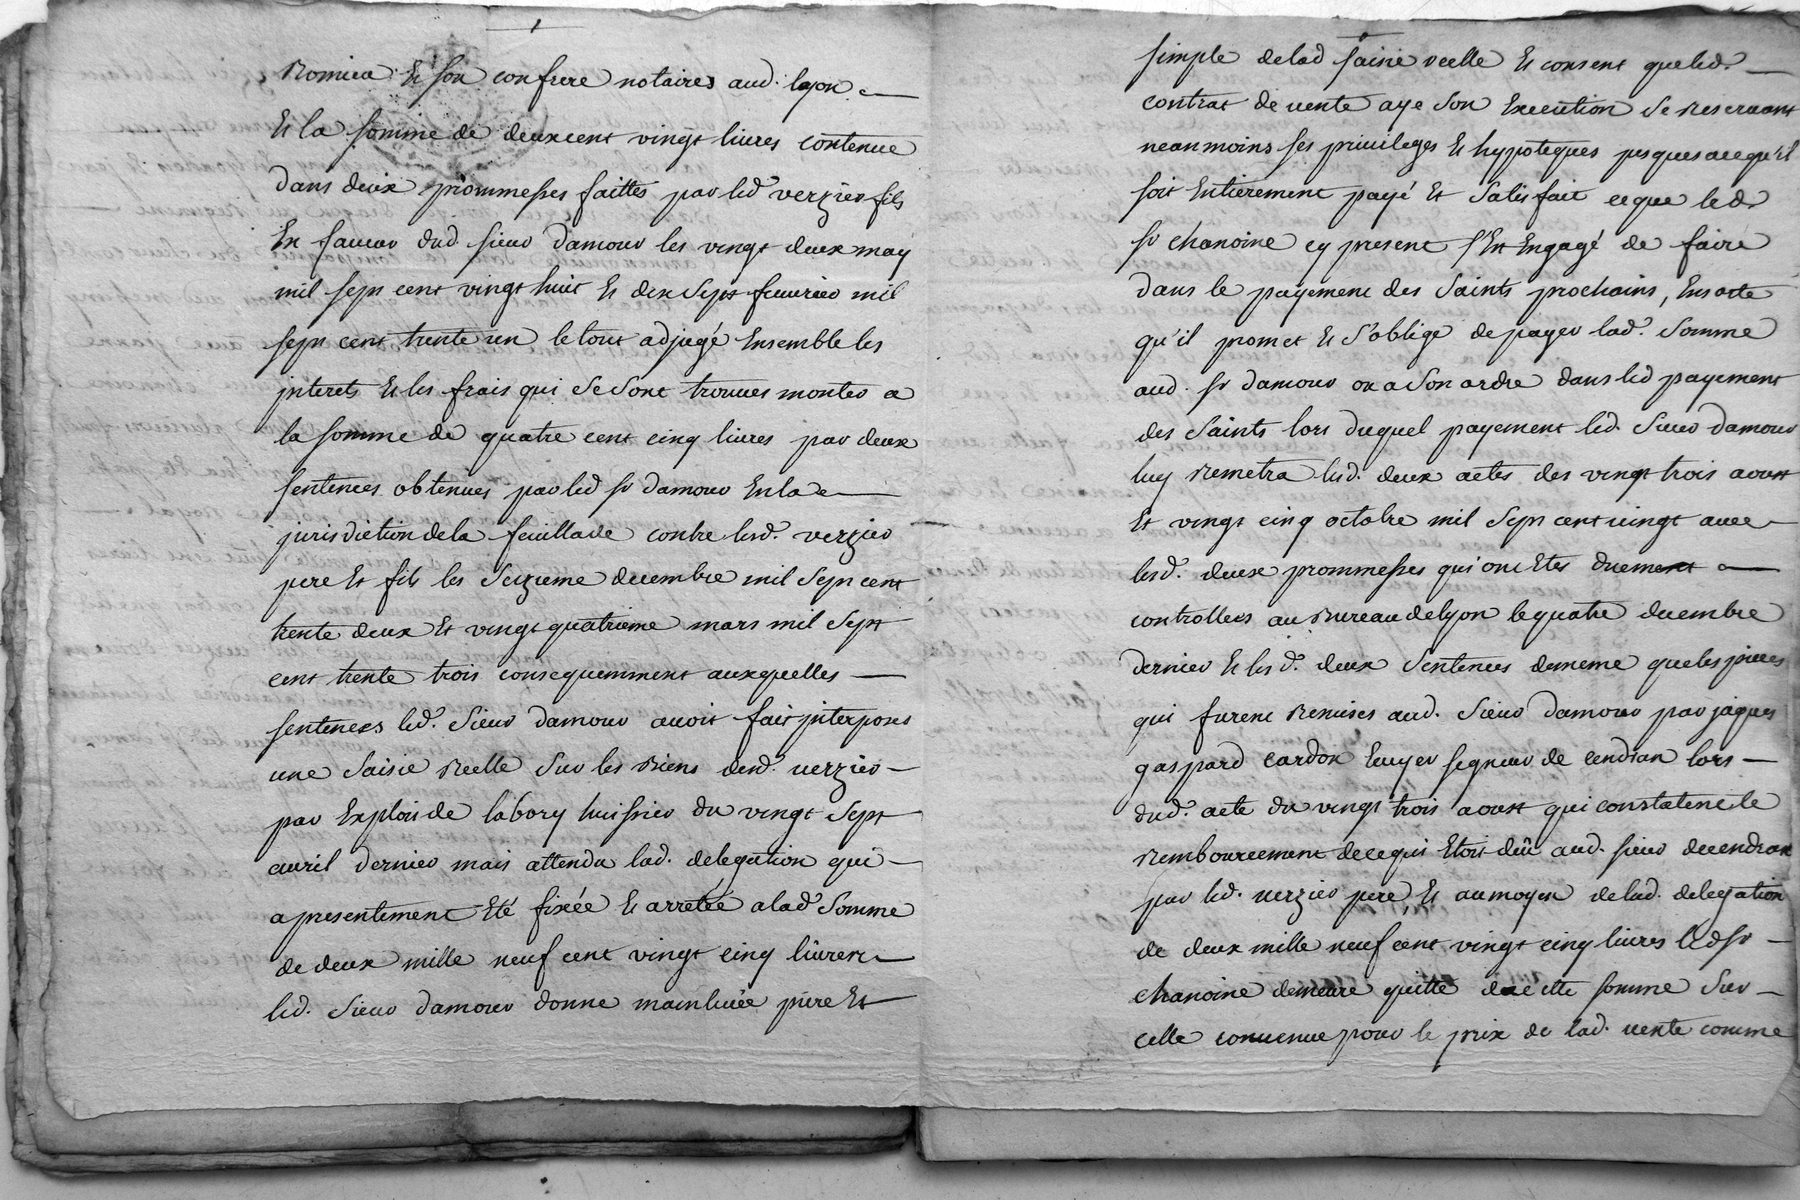 Romieu Et son confrere notaires aud. lyon
Et la somme de deux cent vingt livres contenue
dans deux prommesses faittes par led verzier fils
En faveur dud. sieur damour les vingt deux may
mil sept cent vingt huit Et dix sept feuvrier mil
sept cent trente un le tout adjugé Ensemble les
jnterets Et les frais qui se sont trouves monter a
la somme de quatre cent cinq livres par deux
sentences obtenues par led sr damour En la
jurisdiction de la feuillade contre lesd. verzier
pere Et fils les seizieme decembre mil sept cent
trente deux Et vingt quatrieme mars mil sept
cent trente trois consequemment auxquelles
sentences led. sieur damour avoit fait jnterposer
une saisie reelle sur les Biens desd. verzier
par Exploit de labory huissier du vingt sept
avril dernier mais attendu lad. delegation qui
a presentement Eté fixée Et arretée a lad somme
de deux mille neuf cent vingt cinq livres
led. sieur damour donne mainlevée pure Et
simple de lad saisie reelle Et consent que led.
contrat de vente aye son Execution se reservant
neanmoins ses privileges Et hypoteques jusques a ce qu'il
soit Entierement payé Et satisfait ce que led.
sr chanoine cy present s'Est Engagé de faire
dans le payement des saints prochains, Ensorte
qu'il promet Et s'oblige de payer lad. somme
aud. sr damour ou a son ordre dans led payement
des saints lors duquel payement led. sieur damour
luy remetra lesd. deux actes des vingt trois aoust
Et vingt cinq octobre mil sept cent vingt avec
lesd. deux prommesses qui ont Etes duement
controllees au Bureau de lyon le quatre decembre
dernier Et lesd. deux sentences de meme que les pieces
qui furent remises aud. sieur damour par jaques
gaspard cardon Ecuyer segneur de sendran lors
dud. acte du vingt trois aoust qui constatent le
remboursement de ce qui Etoit dû aud. sieur de sendran
par led. verzier pere, Et au moyen de lad. delegation
de deux mille neuf cent vingt cinq livres led sr
chanoine demeure quitte de cette somme sur
celle convenue pour le prix de lad. vente comme